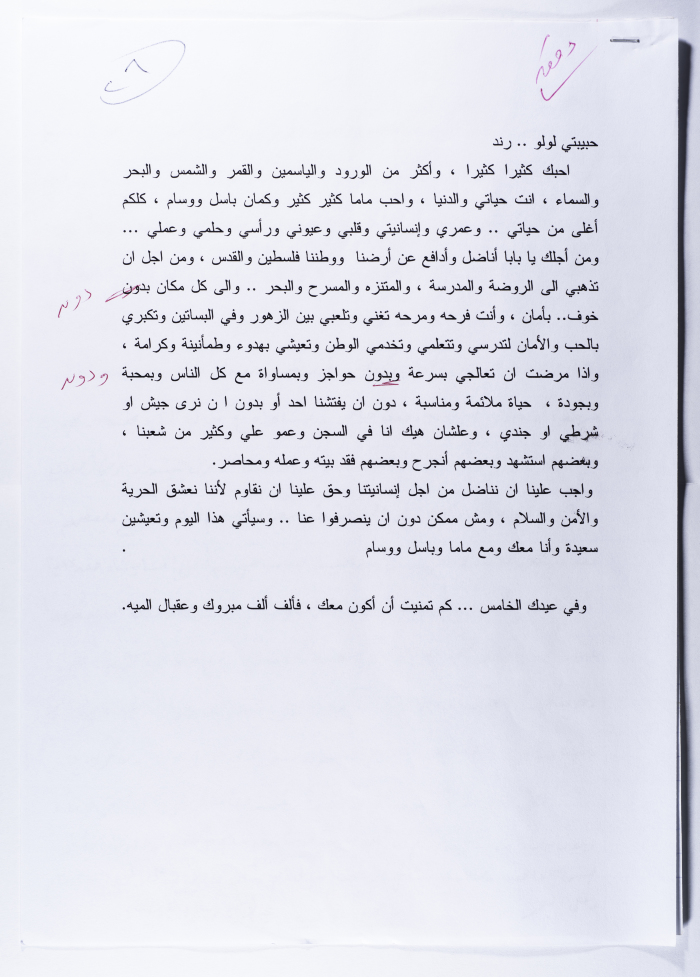 حبيبتي لولو .. رند
احبك كثيرا كثيرا ، وأكثر من الورود والياسمين والقمر والشمس والبحر
والسماء ، انت حياتي والدنيا ، واحب ماما كثير كثير وكمان باسل ووسام ، كلكم
أغلى من حياتي .. وعمري وإنسانيتي وقلبي وعيوني ورأسي وحلمي وعملي ...
ومن أجلك يا بابا أناضل وأدافع عن أرضنا ووطننا فلسطين والقدس ، ومن اجل ان
تذهبي الى الروضة والمدرسة ، والمتنزه والمسرح والبحر .. والى كل مكان بدون
دون
خوف.. بأمان ، وأنت فرحه ومرحه تغني وتلعبي بين الزهور وفي البساتين وتكبري
بالحب والأمان لتدرسي وتتعلمي وتخدمي الوطن وتعيشي بهدوء وطمأنينة وكرامة ،
واذا مرضت ان تعالجي بسرعة وبدون حواجز وبمساواة مع كل الناس وبمحبة
ودون
وبجودة ، حياة ملائمة ومناسبة ، دون ان يفتشنا احد أو بدون ا ن نرى جيش او
شرطي او جندي ، وعلشان هيك انا في السجن وعمو علي وكثير من شعبنا ،
وبعضهم استشهد وبعضهم أنجرح وبعضهم فقد بيته وعمله ومحاصر.
واجب علينا ان نناضل من اجل إنسانيتنا وحق علينا ان نقاوم لأننا نعشق الحرية
والأمن والسلام ، ومش ممكن دون ان ينصرفوا عنا .. وسيأتي هذا اليوم وتعيشين
سعيدة وأنا معك ومع ماما وباسل ووسام .
وفي عيدك الخامس ... كم تمنيت أن أكون معك ، فألف ألف مبروك وعقبال الميه.